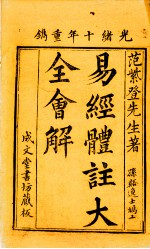 光緒十年重鐫
范紫登先生著
易經體註大
全會解
成文堂書坊藏板